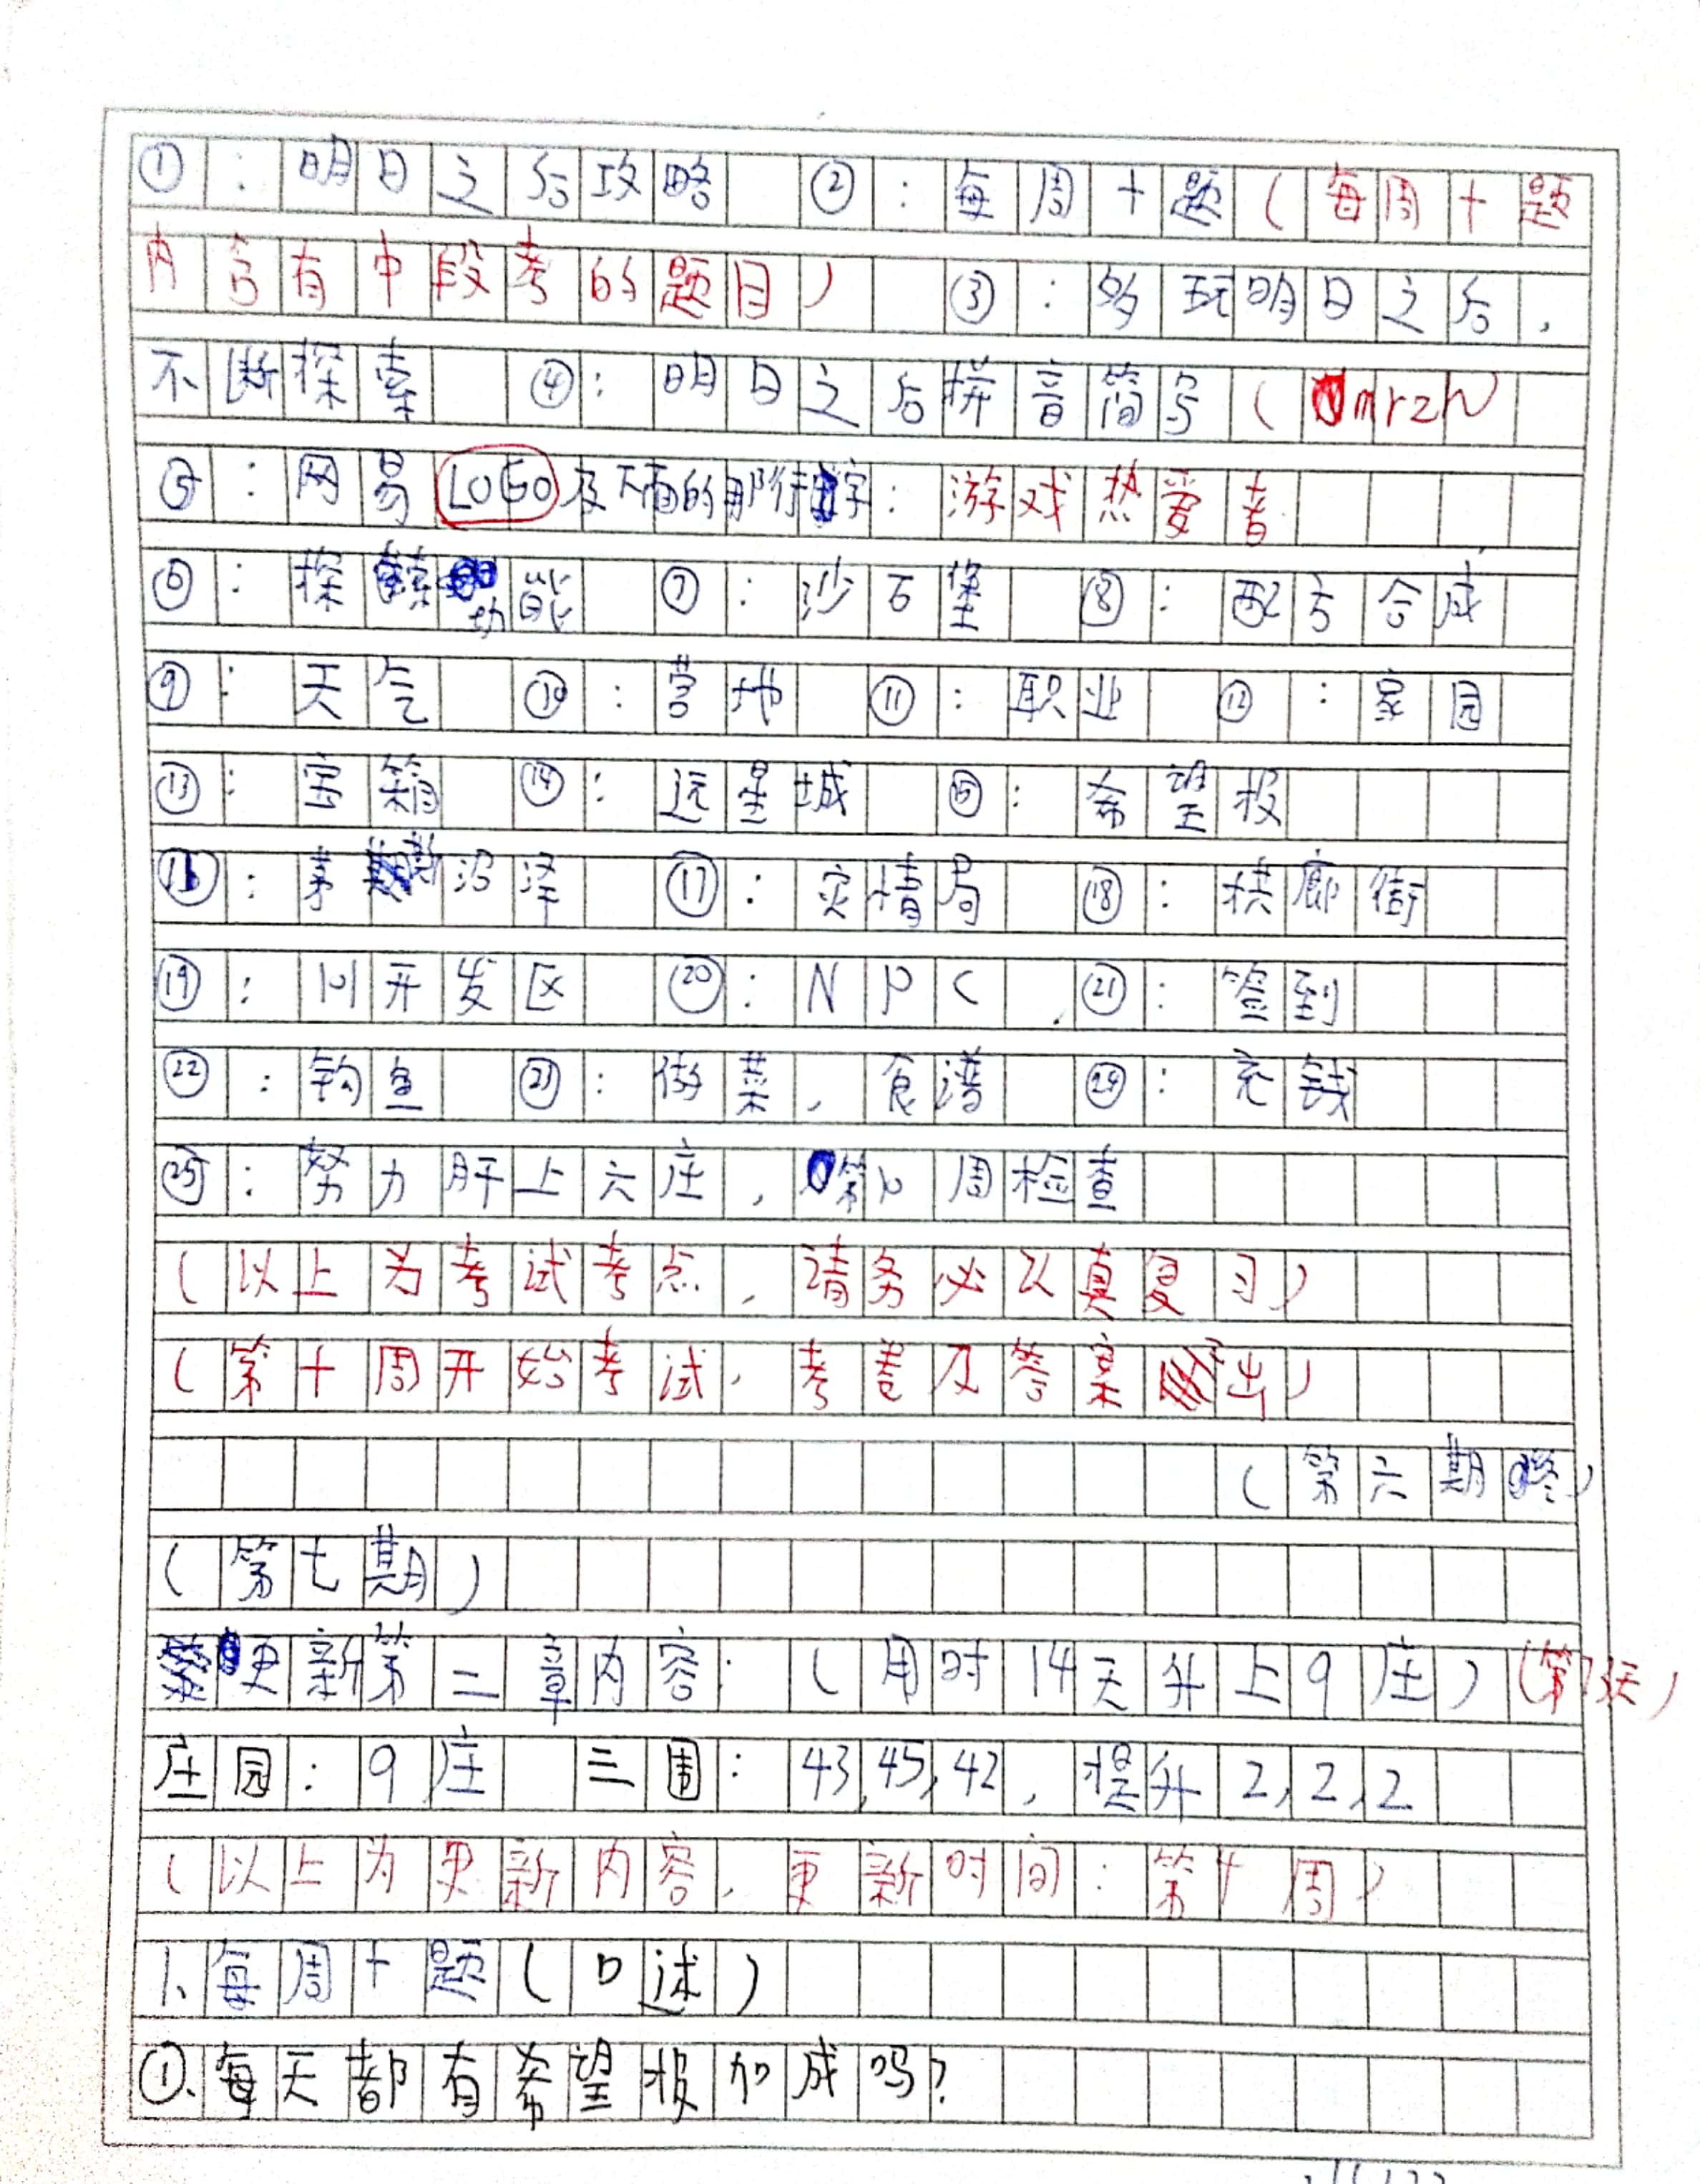 ①：明日之后攻略 ②：每周十题（每周十题
内含有中段考的题目） ③：多玩明日之后，
不断探索 ④：明日之后拼音简写（mrzh
⑤：网易LOGO及下面的那行字：游戏热爱者
⑥：探索功能 ⑦：沙石堡 ⑧：配方合成
⑨：天气 ⑩：营地 ⑪：职业 ⑫：家园
⑬：宝箱 ⑭：远星城 ⑮：希望报
⑯：沼泽 ⑰：灾情局 ⑱：拱廊街
⑲：101开发区 ⑳：NPC ㉑：签到
㉒：钓鱼 ㉓：做菜，食谱 ㉔：充钱
㉕：努力肝上六庄，第 周检查
（以上为考试考点，请务必认真复习）
（第十周开始考试，考卷及答案 出）
（第六期终）
（第七期）
更新第二章内容：（用时14天升上9庄）（第 天）
庄园：9庄 三围：43,45,42，提升2,2,2
（以上为更新内容，更新时间：第十周）
1、每周十题（口述）
①、每天都有希望报加成吗？